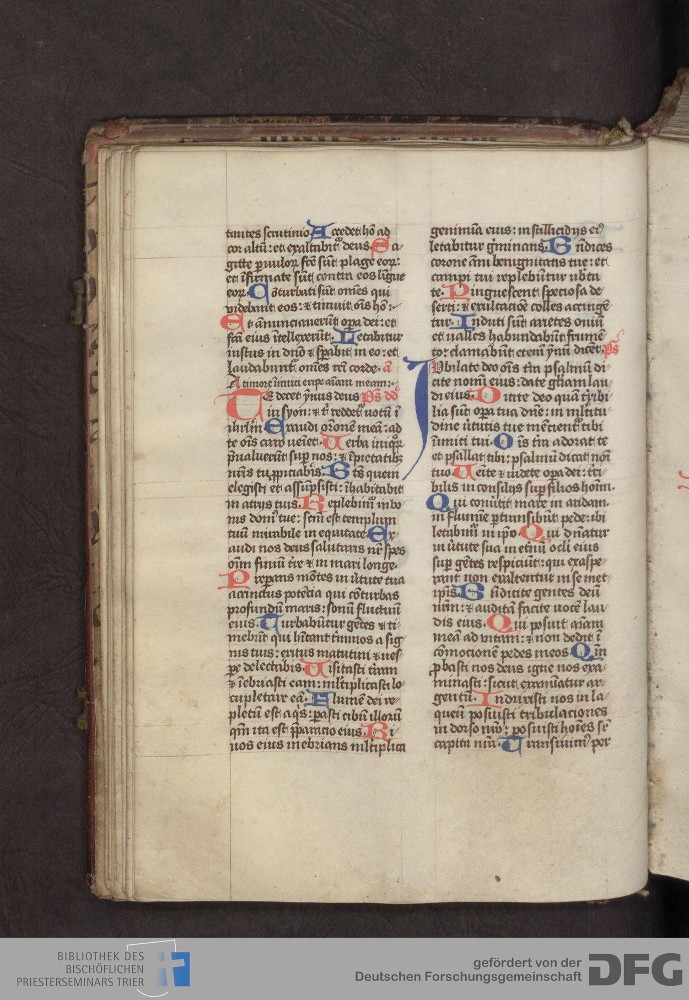 tantes scrutinio. Accedet hō ad
cor altū: et exaltabit̄ deus. Sa-
gitte ꝑuulor̄ fc̄e sūt plage eor̄:
et īfirmate sūt contra eos līgue
eor̄. Cōturbati sūt om̄es qui
videbant eos: ⁊ timuit om̄s hō:
Et ānunciauerūt oꝑa dei: et
fc̄a eius ītellexerūt. Letabitur
iustus in dn̄o ⁊ sp̄abit in eo: et
laudabunt̄ om̄es rc̄ti corde. a
A timore inimici eripe aīam meam:
Te decet ymnus deus p̄s dd̄
in syon: ⁊ t̄ reddet̄ uotū ī
ihrlm̄. Exaudi orōnem meā: ad
te om̄s caro ueīet. Uerba iniqr̄
p̄ualuerūt suꝑ nos: ⁊ īpietatib̄
nr̄is tu ꝓpiciab̄is. Bt̄s quem
elegisti et assūpsisti: īhabitabit
in atriis tuis. Replebim̄ in bo
nis dom̄ tue: sc̄m est templum
tuū mirabile in equitate. Ex
audi nos deus salutaris nr̄ spes
oīm finiū tr̄e ⁊ in mari longe.
Preparans mōtes in ūtute tua
accinctus potētia qui cōturbas
profundū maris: sonū fluctuū
eius. Turbabūtur gētes ⁊ ti
mebūt qui hītant tīminos a sig
nis tuis: exitus matutini ⁊ ues
ꝑe delectabis. Uisitasti tr̄am
⁊ īebriasti eam: ml̄tiplicasti lo
cupletare eā. Flumē dei re
pletū est aq̄s: ꝑasti cibū illorū
qm̄ ita est p̄ꝑatio eius. Ri
uos eius inebrians ml̄tiplica
genimīa eius: in stillicidiis ei⁹
letabitur gīminans. Bn̄dices
corone āni benignitatis tue: et
campi tui replebūtur ub̄ta
te. Pinguescent speciosa de
serti: ⁊ exultacōe colles accingē
tur. Induti sūt arietes ouiū
et ualles habundabūt frumē
to: clamabūt eteni ymū dicēt. p̄s
Iubilate deo om̄s tr̄a psalmū di
cite nomī eius: date gl̄iam lau
di eius. Dicite deo quā tr̄ibi
lia sūt oꝑa tua dn̄e: in ml̄titu
dine ūtutis tue mēcient̄ tibi
inimici tui. Om̄s tr̄a adorat te
et psallat tibi: psalmū dicat noī
tuo. Ueīte ⁊ uidete oꝑa dei: tr̄i
bilis in consiliis suꝑ filios homī.
Qui conūtit mare in aridam.
in flumīe ꝑtransibūt pede: ibi
letabim̄ in ip̄o. Qui dn̄atur
in ūtute sua in et̄nū ocl̄i eius
suꝑ gētes respiciūt: qui exaspe
rant non exaltentur in se met
ip̄is. Bn̄dicite gentes deū
nr̄m: ⁊ auditā facite uocē lau
dis eius. Qui posuit aīam
meā ad uitam: ⁊ non dedit ī
cōmocionē pedes meos. Qm̄
ꝓbasti nos deus igne nos exa
minasti: sicut examīatur ar
gentū. Induxisti nos in la
queū posuisti tribulaciones
in dorso nr̄o: posuisti hoīes sr̄
capita nr̄a. Transiuim̄ per
BIBLIOTHEK DES
BISCHÖFLICHEN
PRIESTERSEMINARS TRIER
gefördert von der
Deutschen Forschungsgemeinschaft
DFG